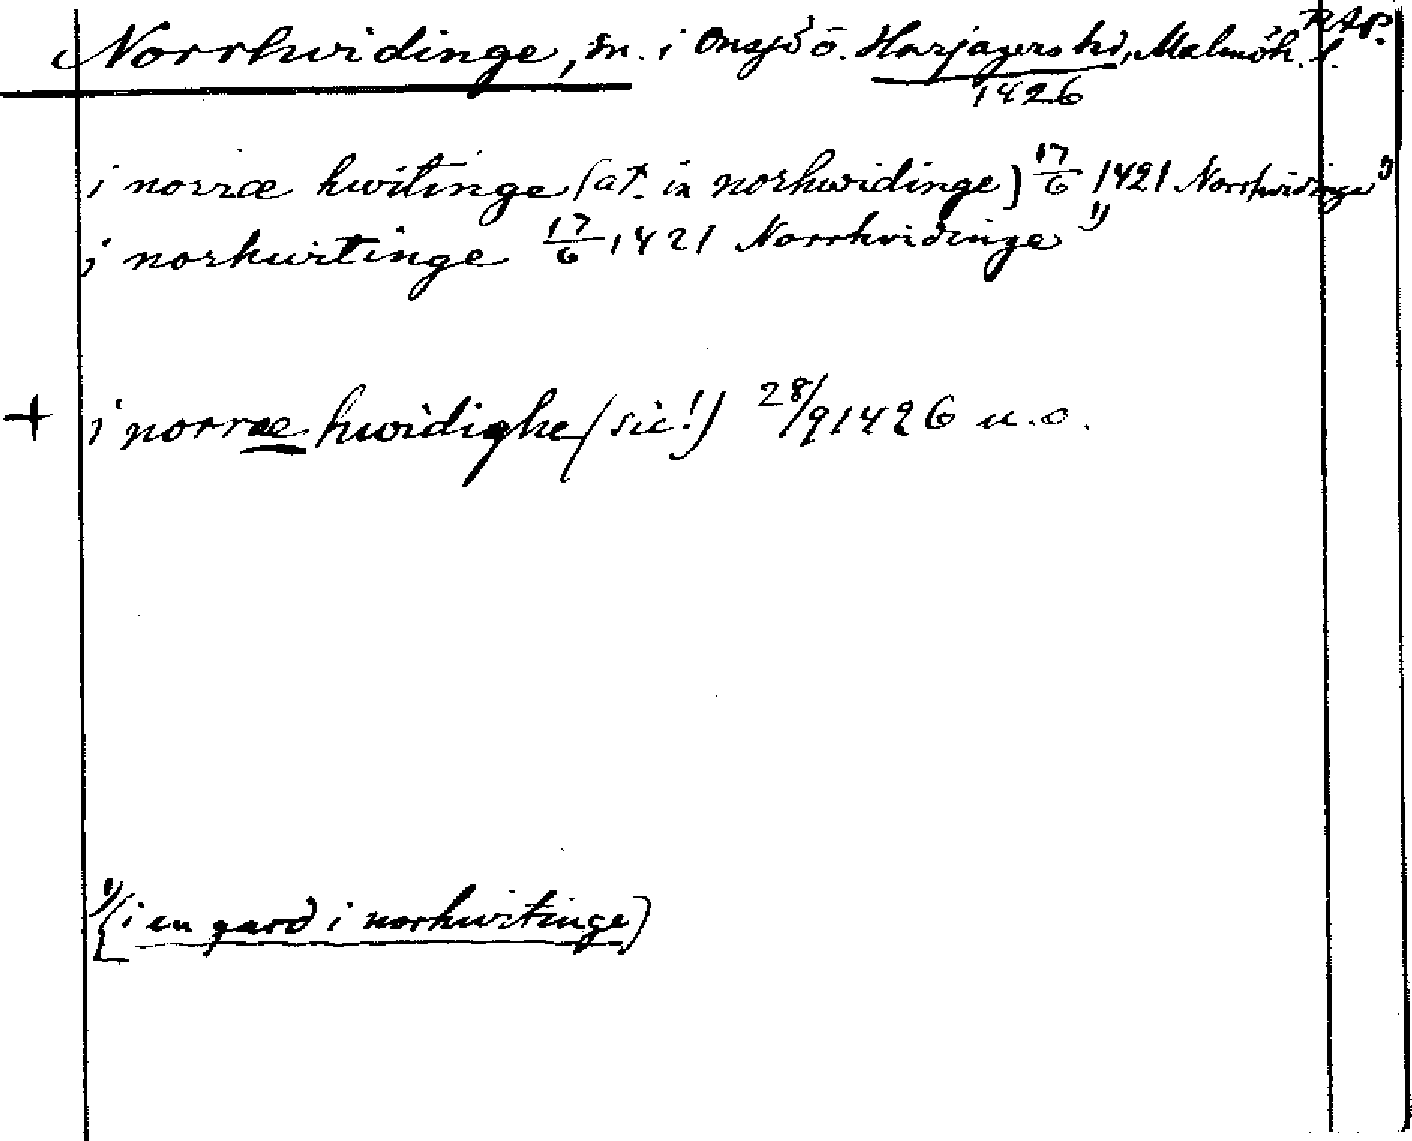 RAp.
Norrhwidinge, sn. i Onsjö o. Harjagers hd, Malmöh. l.
1426
i norræ hwitinge (at. in norhwidinge) 17/6 1421 Norrhvidinge 1)
i norhwitinge 17/6 1421 Norrhvidinge 1)
+ i norræ hwidighe (sic!) 28/9 1426 u.o.
1) (i en gard i norhwitinge)